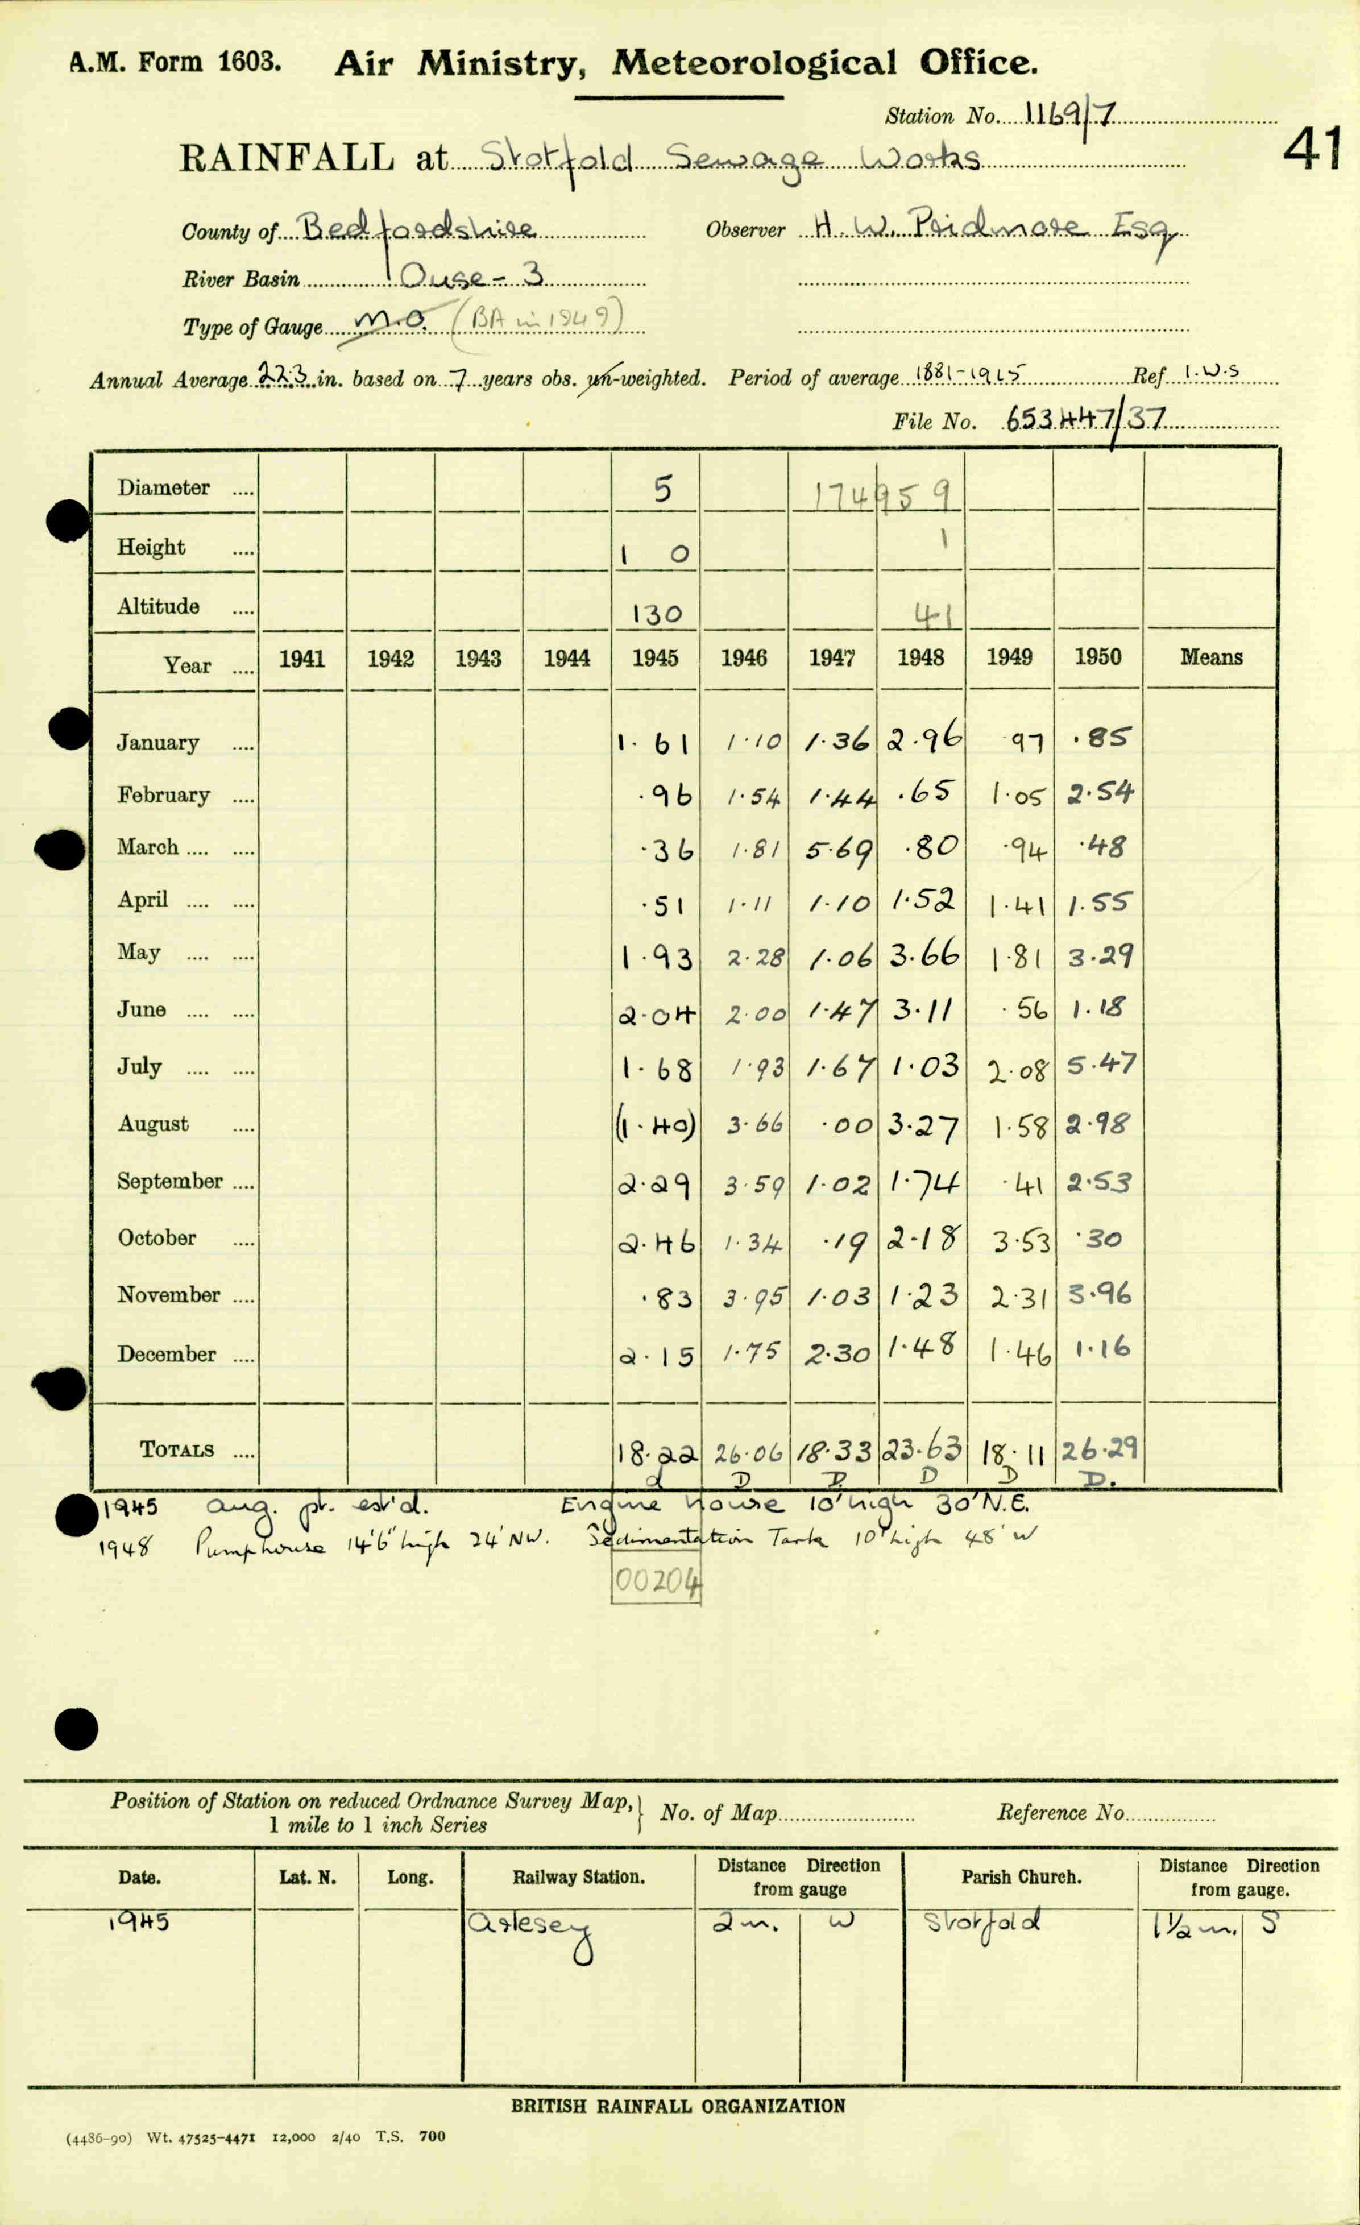 A.M. Form 1603. Air Ministry, Meteorological Office.
Station No. 1169/7
RAINFALL at Stotfold Sewage Works
41
County of Bedfordshire Observer H. W. Pridmore Esq
River Basin Ouse - 3
Type of Gauge M.O. (BA in 1949)
Annual Average 22.3 in. based on 7 years obs. un-weighted. Period of average 1881-1915 Ref I.W.S
File No. 653447/37
Diameter .... 5 174959
Height .... 1 0 1
Altitude .... 130 41
Year .... 1941 1942 1943 1944 1945 1946 1947 1948 1949 1950 Means
January .... 1.61 1.10 1.36 2.96 97 .85
February .... .96 1.54 1.44 .65 1.05 2.54
March .... .... .36 1.81 5.69 .80 .94 .48
April .... .... .51 1.11 1.10 1.52 1.41 1.55
May .... .... 1.93 2.28 1.06 3.66 1.81 3.29
June .... .... 2.04 2.00 1.47 3.11 .56 1.18
July .... .... 1.68 1.93 1.67 1.03 2.08 5.47
August .... (1.40) 3.66 .00 3.27 1.58 2.98
September .... 2.29 3.59 1.02 1.74 .41 2.53
October .... 2.46 1.34 .19 2.18 3.53 .30
November .... .83 3.95 1.03 1.23 2.31 3.96
December .... 2.15 1.75 2.30 1.48 1.46 1.16
TOTALS .... 18.22 26.06 18.33 23.63 18.11 26.29
d D D D D D.
1945 Aug. pt. est'd. Engine house 10' high 30' N.E.
1948 Pumphouse 14'6" high 24' NW. Sedimentation Tank 10' high 48' W
00204
Position of Station on reduced Ordnance Survey Map, } No. of Map Reference No.
1 mile to 1 inch Series
Date. Lat. N. Long. Railway Station. Distance Direction from gauge Parish Church. Distance Direction from gauge.
1945 Arlesey 2 m. W Stotfold 1½ m. S
BRITISH RAINFALL ORGANIZATION
(4486-90) Wt. 47525-4471 12,000 2/40 T.S. 700